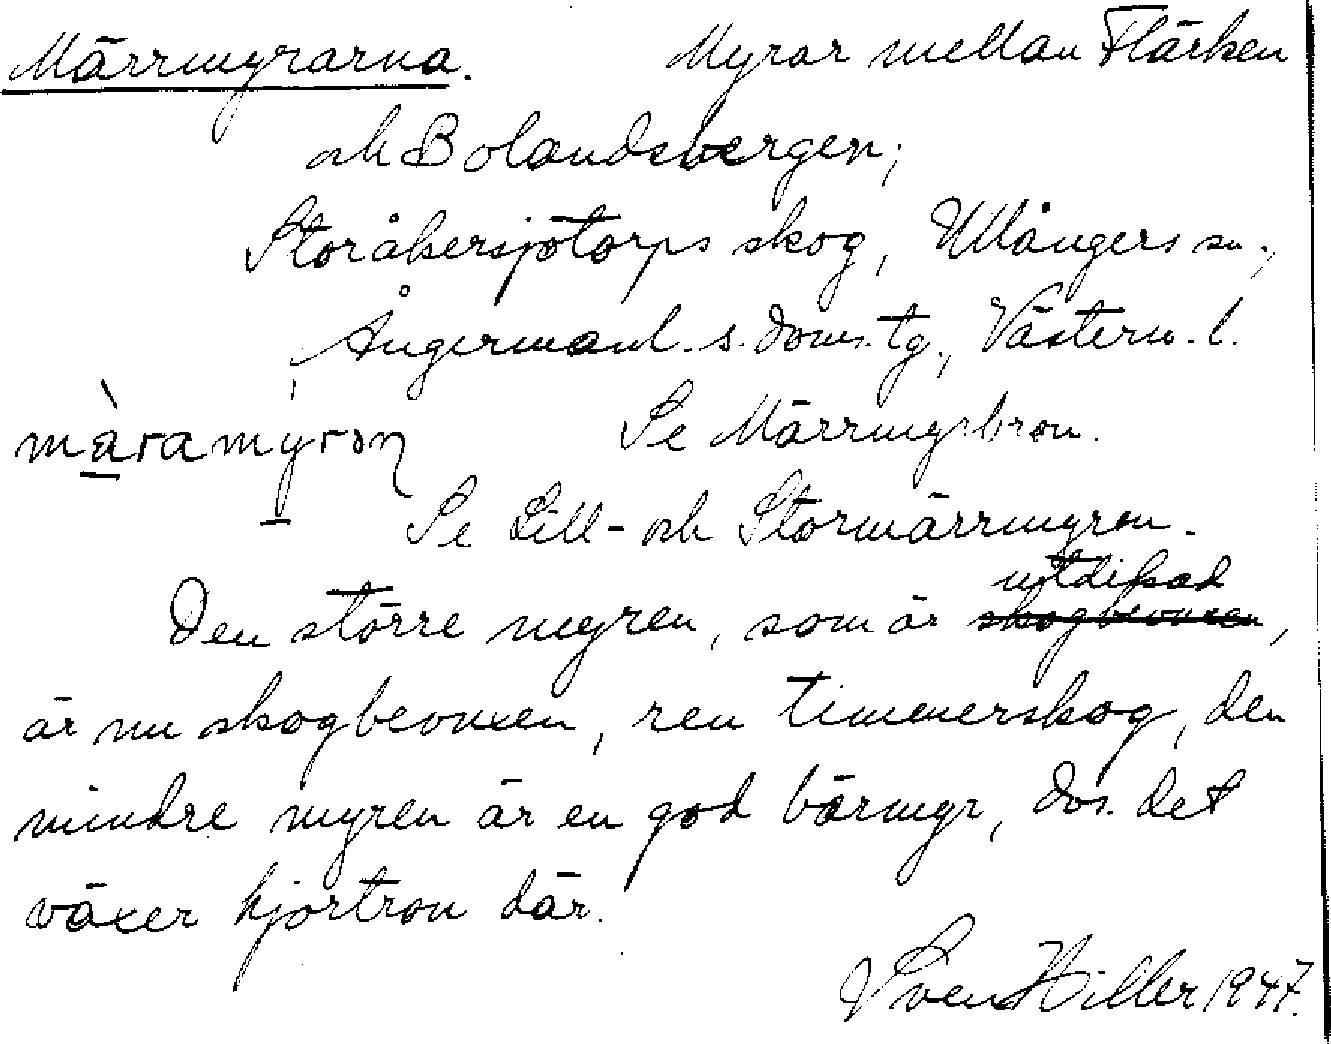 Märrmyrarna. Myrar mellan Flärken
och Bolandsbergen;
Storåkersjötorps skog, Ullångers sn.,
Ångermanl. s. doms. tg., Västern. l.
màramyrơn Se Märrmyrbron.
Se Lill- och Stormärrmyren.
utdikad
Den större myren, som är skogbevuxen,
är nu skogbevuxen, ren timmerskog, den
mindre myren är en god bärmyr, dvs. det
växer hjortron där.
Sven Hiller 1947.